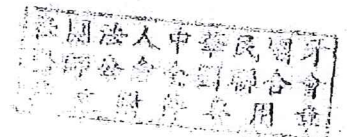 社團法人中華民國牙
醫師公會全國聯合會
文附件專用章